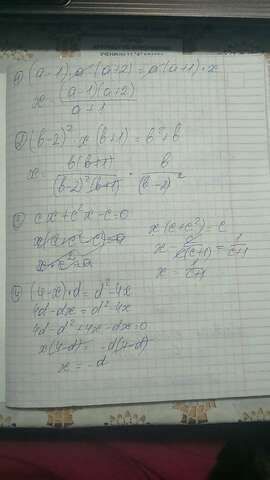 а) (a-1) · a · (a+2) = a(a+1) · x
x = (a-1)(a+2) / a+1
б) (b-2)² x (b+1) = b²+b
x = b(b+1) / (b-2)²(b+1) · b / (b-2)²
cx + c²x - c = 0
x(c+c²) - c
x - c / c(c+1) = 1 / c+1
x = 1 / c+1
(4-x) · d = d² - 4x
4d - dx = d² - 4x
4d - d² + 4x - dx = 0
x(4-d) = -d(4-d)
x = -d